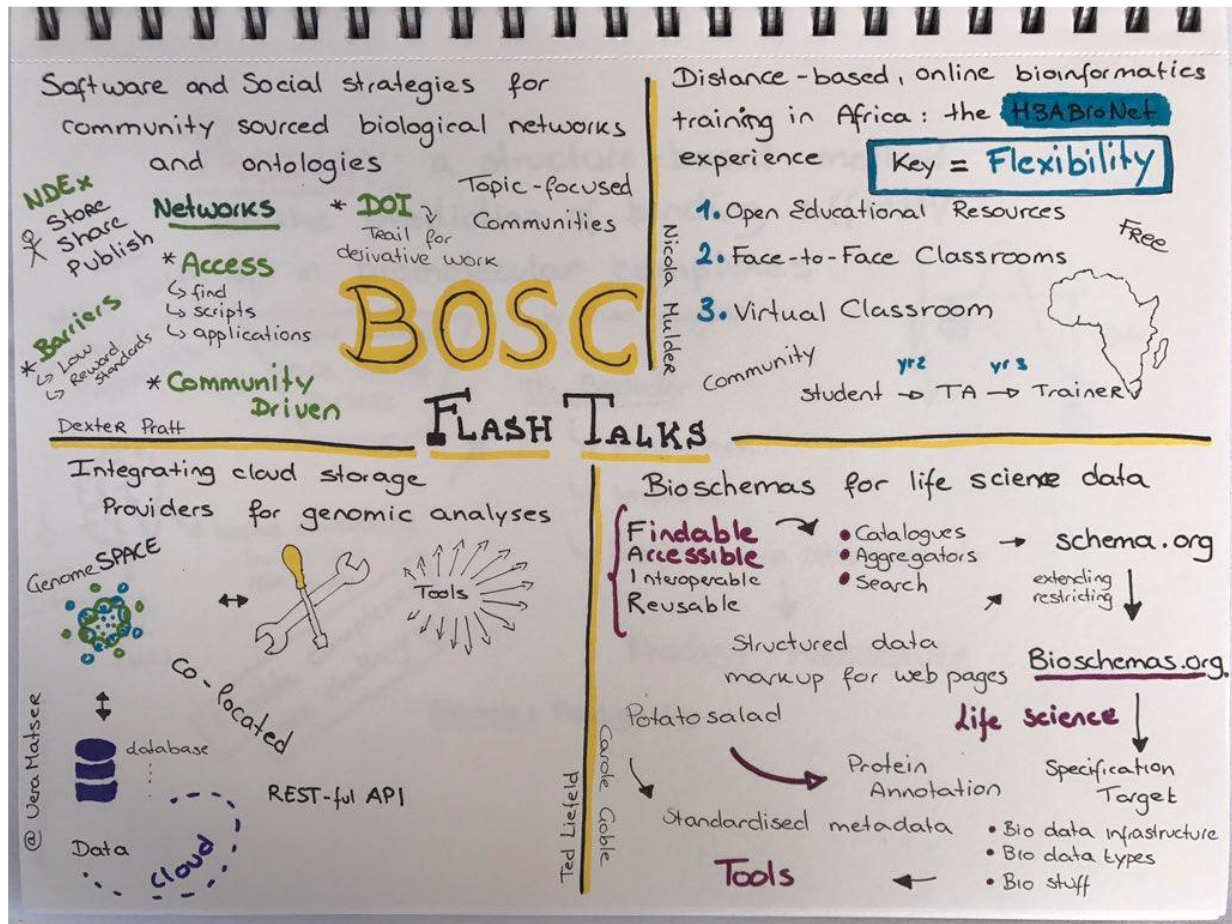 Software and Social strategies for
community sourced biological networks
and ontologies
NDEx
Store
Share
Publish
Networks
* Access
↳ find
↳ scripts
↳ applications
* DOI
Trail for
derivative work
Topic-focused
Communities
* Barriers
↳ Low
Reward
↳ Standards
* Community
Driven
Dexter Pratt
BOSC
FLASH TALKS
Distance-based, online bioinformatics
training in Africa: the H3ABioNet
experience
Key = Flexibility
1. Open Educational Resources
2. Face-to-Face Classrooms
3. Virtual Classroom
FREE
Community
yr2 yr 3
student → TA → Trainer
Nicola Mulder
Integrating cloud storage
Providers for genomic analyses
GenomeSPACE
Tools
Co-located
database
REST-ful API
Data
cloud
@ Vera Matser
Ted Liefeld
Bioschemas for life science data
Findable
Accessible
Interoperable
Reusable
• Catalogues
• Aggregators
• Search
→ schema.org
extending
restricting
Structured data
markup for web pages
Bioschemas.org
Life science
Potato salad
Protein
Annotation
Specification
Target
Standardised metadata
• Bio data infrastructure
• Bio data types
• Bio stuff
Tools
Carole Goble